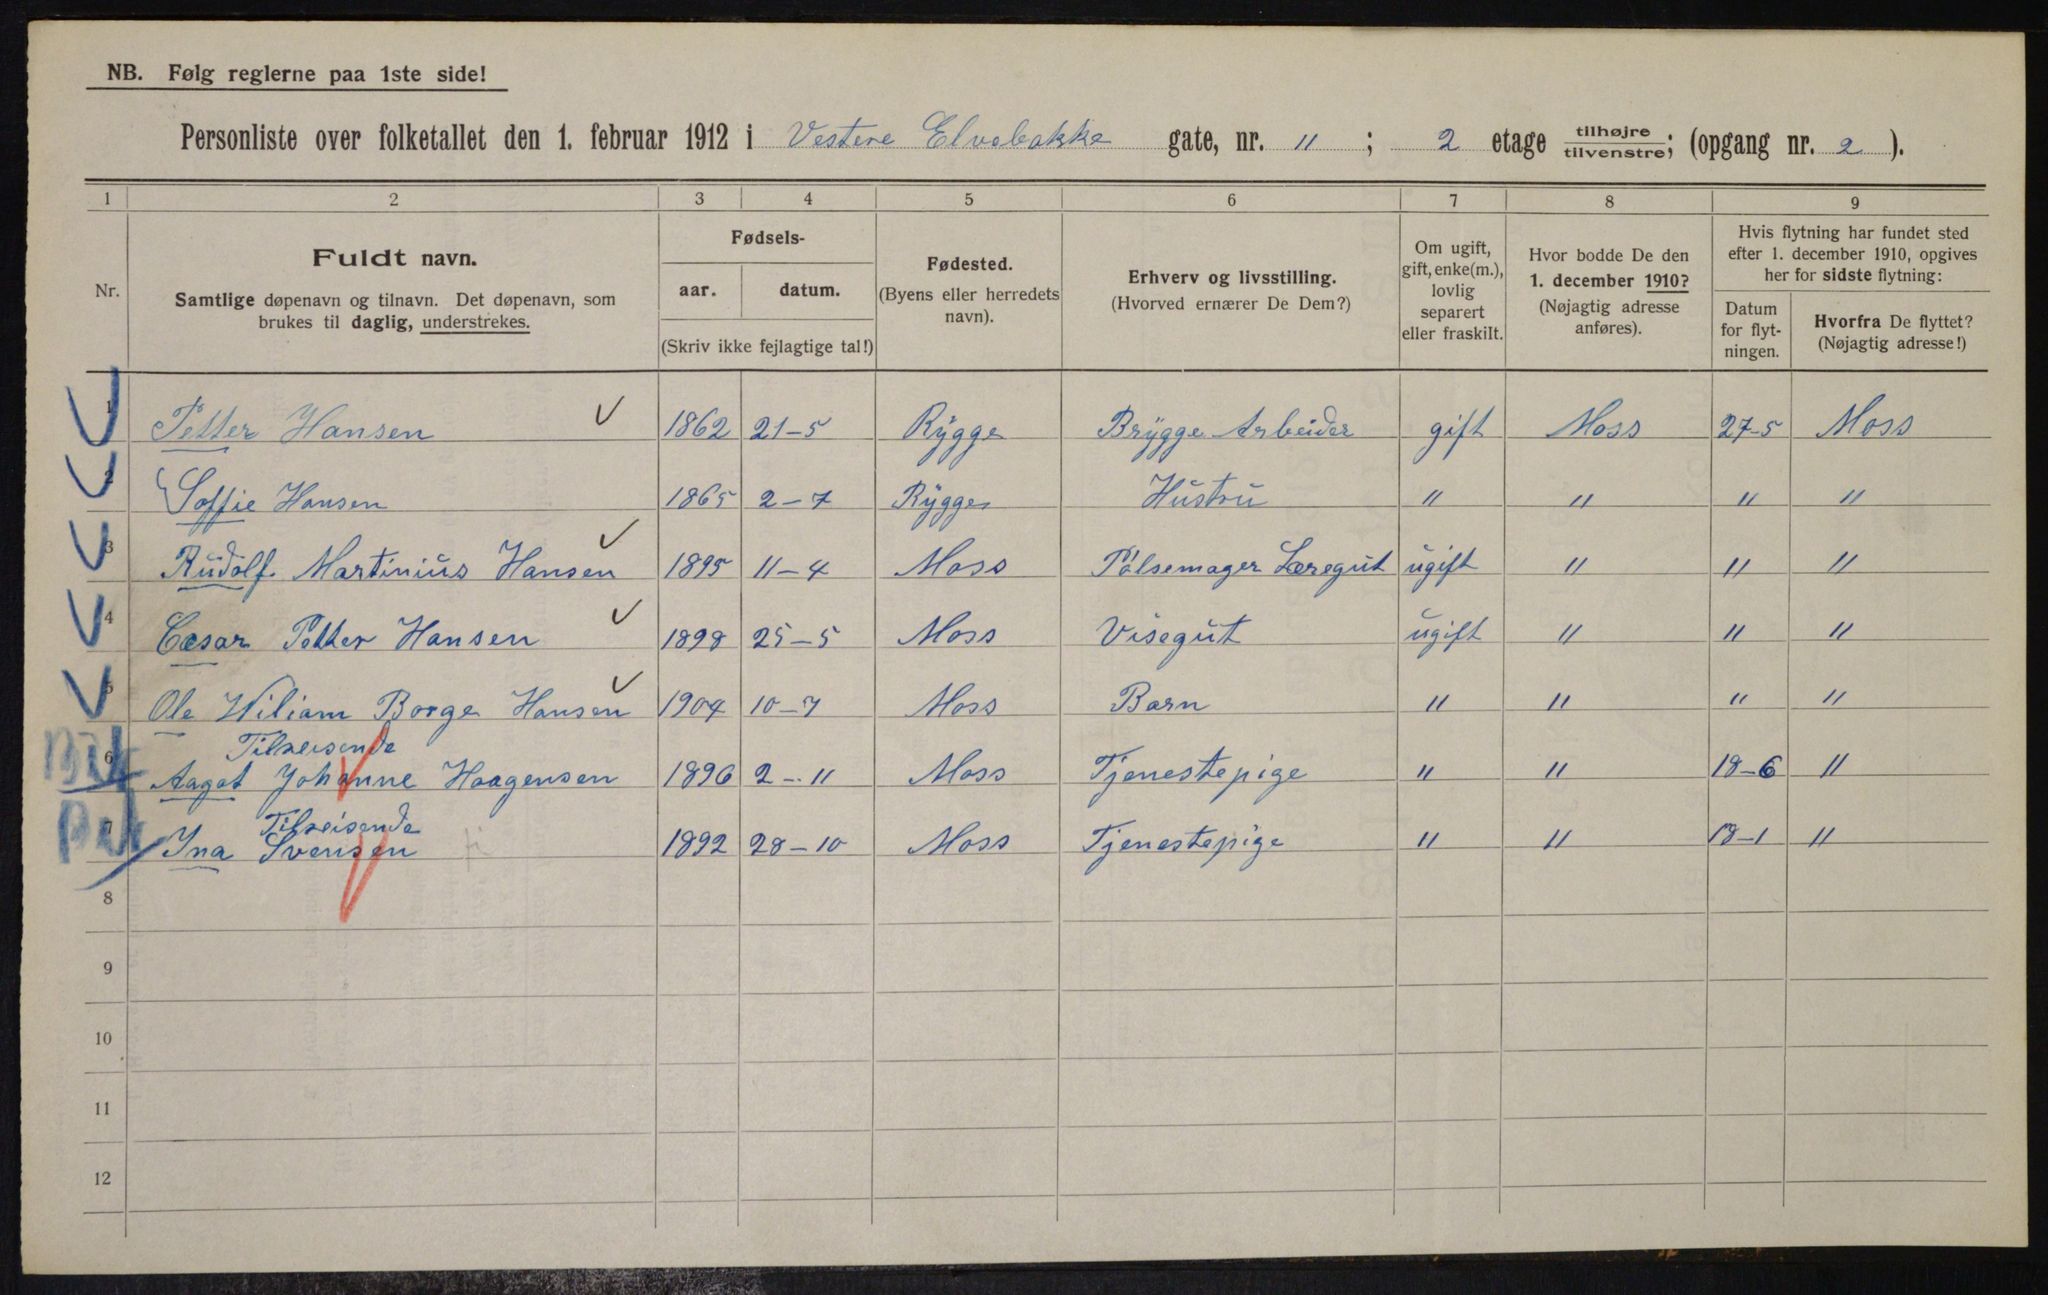 NB. Følg reglerne paa 1ste side!
Personliste over folketallet den 1. februar 1912 i Vestere Elvebakke gate, nr. 11 ; 2 etage tilhøjre/tilvenstre; (opgang nr. 2 ).
1 2 3 4 5 6 7 8 9
Nr.
Fuldt navn.
Samtlige døpenavn og tilnavn. Det døpenavn, som
brukes til daglig, understrekes.
Fødsels-
aar. datum.
(Skriv ikke fejlagtige tal!)
Fødested.
(Byens eller herredets
navn).
Erhverv og livsstilling.
(Hvorved ernærer De Dem?)
Om ugift,
gift, enke(m.),
lovlig
separert
eller fraskilt.
Hvor bodde De den
1. december 1910?
(Nøjagtig adresse
anføres).
Hvis flytning har fundet sted
efter 1. december 1910, opgives
her for sidste flytning:
Datum
for flyt-
ningen.
Hvorfra De flyttet?
(Nøjagtig adresse!)
1 Petter Hansen 1862 21-5 Rygge Brygge Arbeider gift Moss 27-5 Moss
2 Soffie Hansen 1865 2-7 Rygge Hustru " " " "
3 Rudolf Martinius Hansen 1895 11-4 Moss Pølsemager Læregut ugift " " "
4 Cæsar Petter Hansen 1898 25-5 Moss Visegut ugift " " "
5 Ole Wiliam Borge Hansen 1904 10-7 Moss Barn " " " "
Tilreisende
6 Aagot Johanne Haagensen 1896 2-11 Moss Tjenestepige " " 18-6 "
Tilreisende
7 Ina Svensen 1892 28-10 Moss Tjenestepige " " 18-1 "
8
9
10
11
12